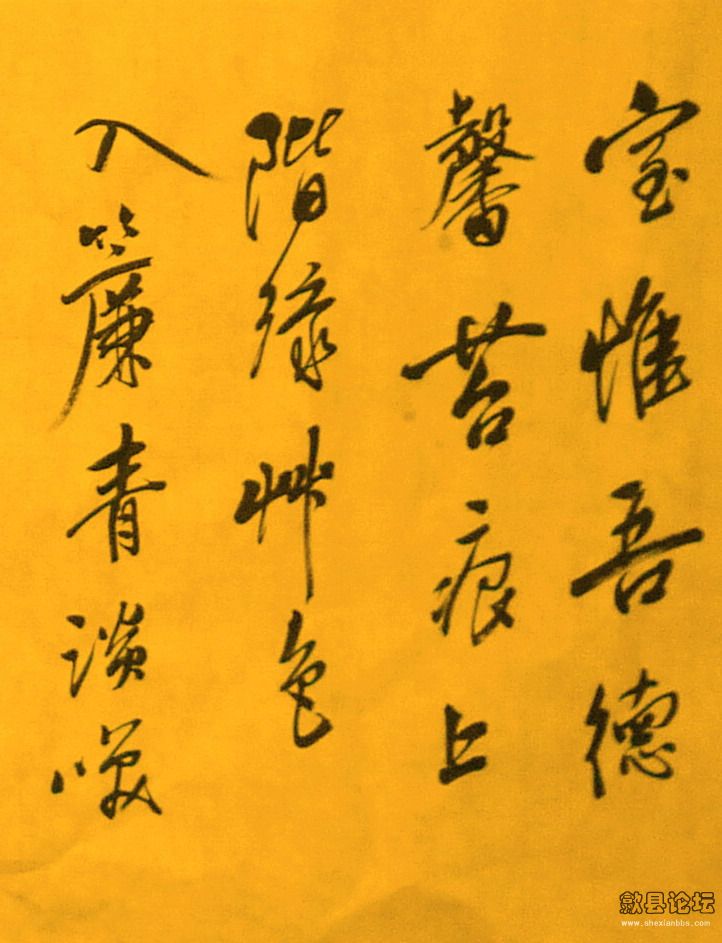 室惟吾德
馨苔痕上
階綠艸色
入簾青談
咲
歙县论坛
www.shexianbbs.com